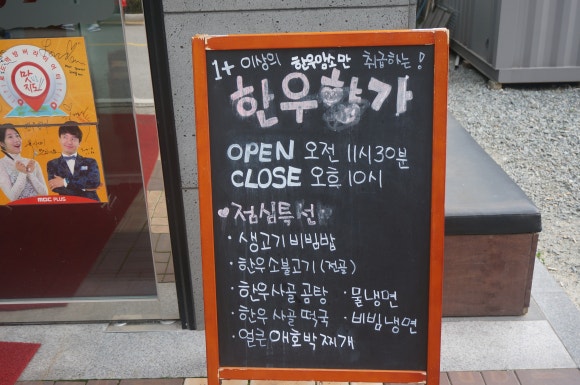 맛
지도
MBC PLUS
1+ 이상의 한우암소만 취급하는!
한우향가
OPEN 오전 11시30분
CLOSE 오후 10시
점심특선
· 생고기비빔밥
· 한우소불고기 (전골)
· 한우사골 곰탕 · 물냉면
· 한우사골 떡국 · 비빔냉면
· 얼큰애호박찌개